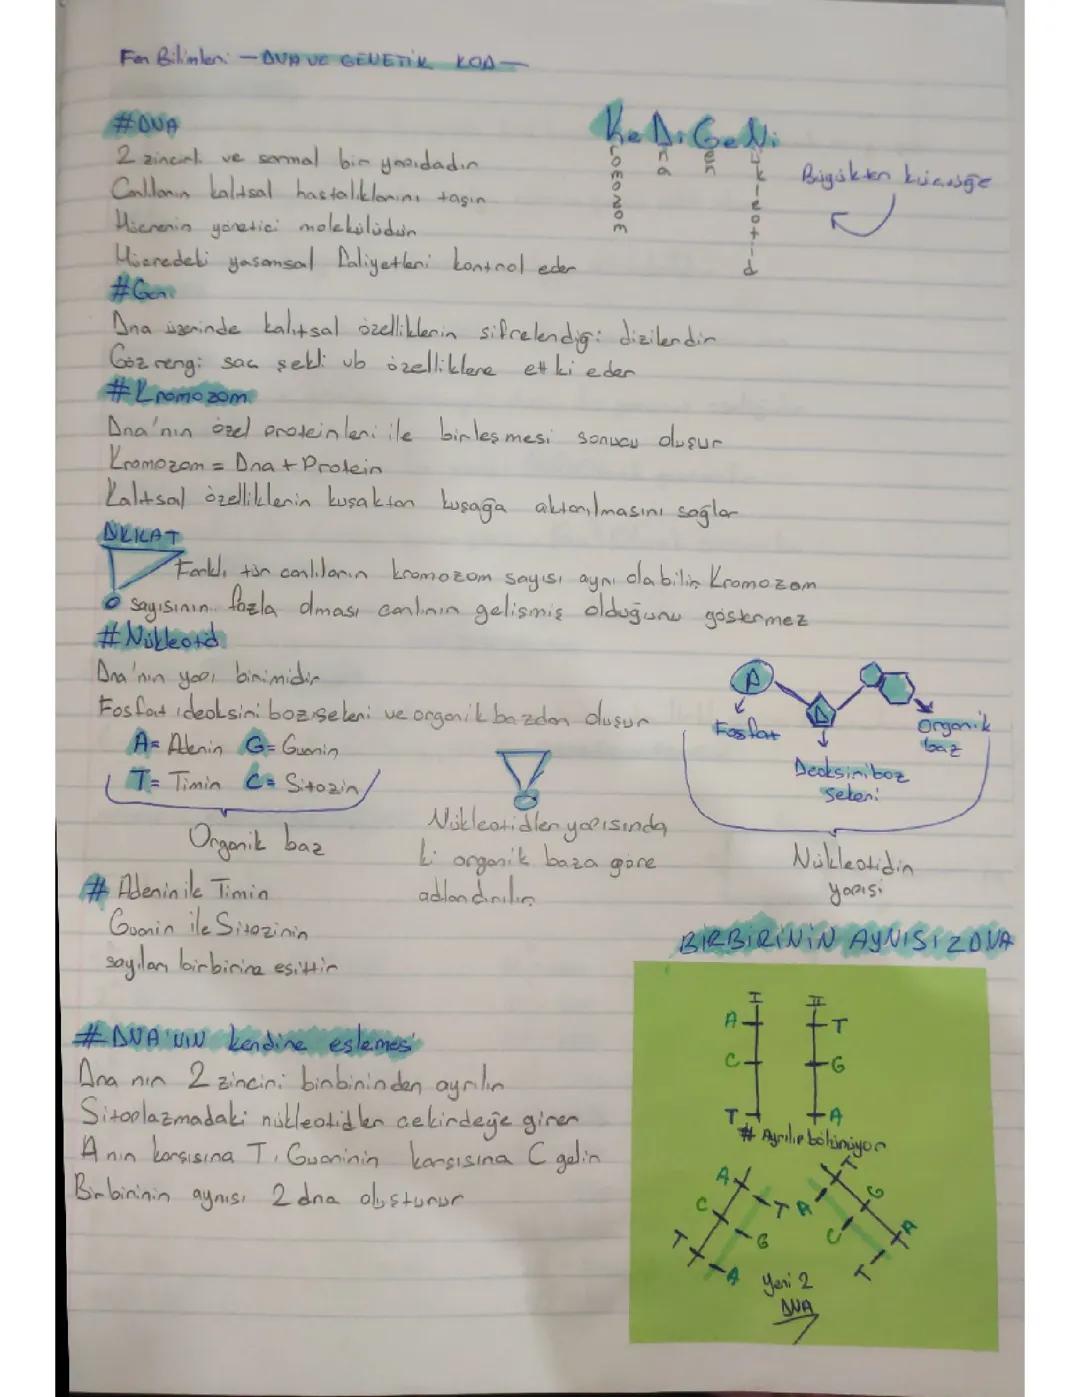 Fen Bilimleri — DNA VE GENETİK KOD —
#DNA
2 zincirli ve sarmal bir yapıdadır
Canlıların kalıtsal hastalıklarını taşır
Hücrenin yönetici molekülüdür
Hücredeki yaşamsal faliyetleri kontrol eder
KeDiGeNi
Kromozom
Dna
Gen
Nükleotid
Büyükten küçüğe
#Gen
Dna üzerinde kalıtsal özelliklerin şifrelendiği dizilerdir
Göz rengi saç şekli vb özelliklere etki eder
#Kromozom
Dna'nın özel proteinleri ile birleşmesi sonucu oluşur
Kromozom = Dna + Protein
Kalıtsal özelliklerin kuşaktan kuşağa aktarılmasını sağlar
DİKKAT
Farklı tür canlıların kromozom sayısı aynı olabilir Kromozom
sayısının fazla olması canlının gelişmiş olduğunu göstermez
#Nükleotid
Dna'nın yapı birimidir
Fosfat, deoksiriboz şekeri ve organik bazdan oluşur
A= Adenin G= Guanin
T= Timin C= Sitozin
Organik baz
Nükleotidler yapısında
ki organik baza göre
adlandırılır
Fosfat
D
Deoksiriboz
şekeri
Organik
baz
Nükleotidin
yapısı
# Adenin ile Timin
Guanin ile Sitozinin
sayıları birbirine eşittir
BİRBİRİNİN AYNISI 2 DNA
I II
A T
C G
T A
# Ayrılıp bölünüyor
A T A T
C G C G
T A T A
Yeni 2
DNA
#DNA'NIN kendine eşlemesi
Dna nın 2 zinciri birbirinden ayrılır
Sitoplazmadaki nükleotidler çekirdeğe girer
A nın karşısına T, Guaninin karşısına C gelir
Birbirinin aynısı 2 dna oluşturur